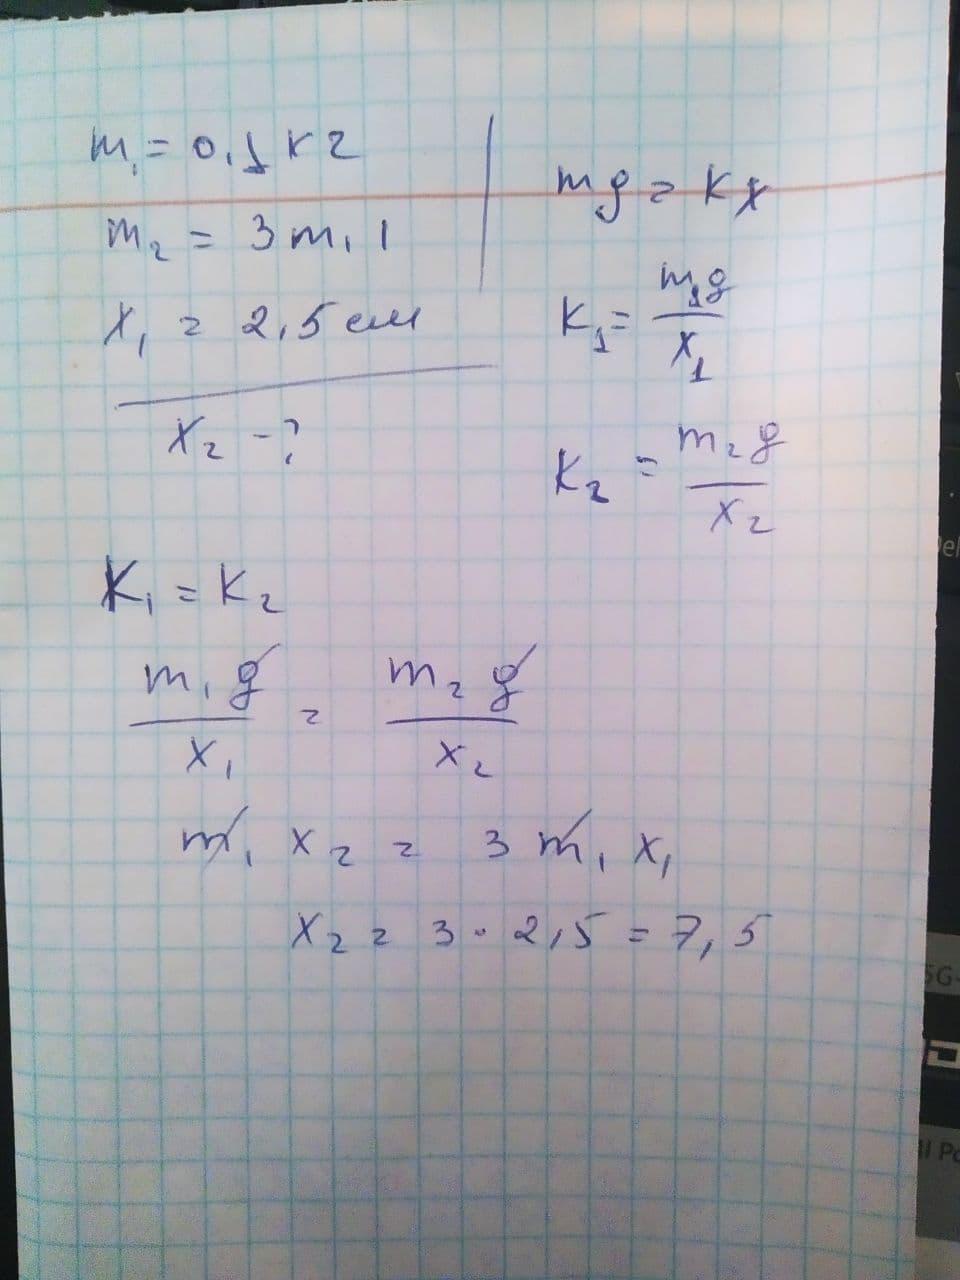 m₁ = 0,1 кг
m₂ = 3 m₁
x₁ = 2,5 см
x₂ - ?
mg = kx
k₁ = m₁g / x₁
k₂ = m₂g / x₂
k₁ = k₂
m₁g / x₁ = m₂g / x₂
m₁ x₂ = 3 m₁ x₁
x₂ = 3 · 2,5 = 7,5